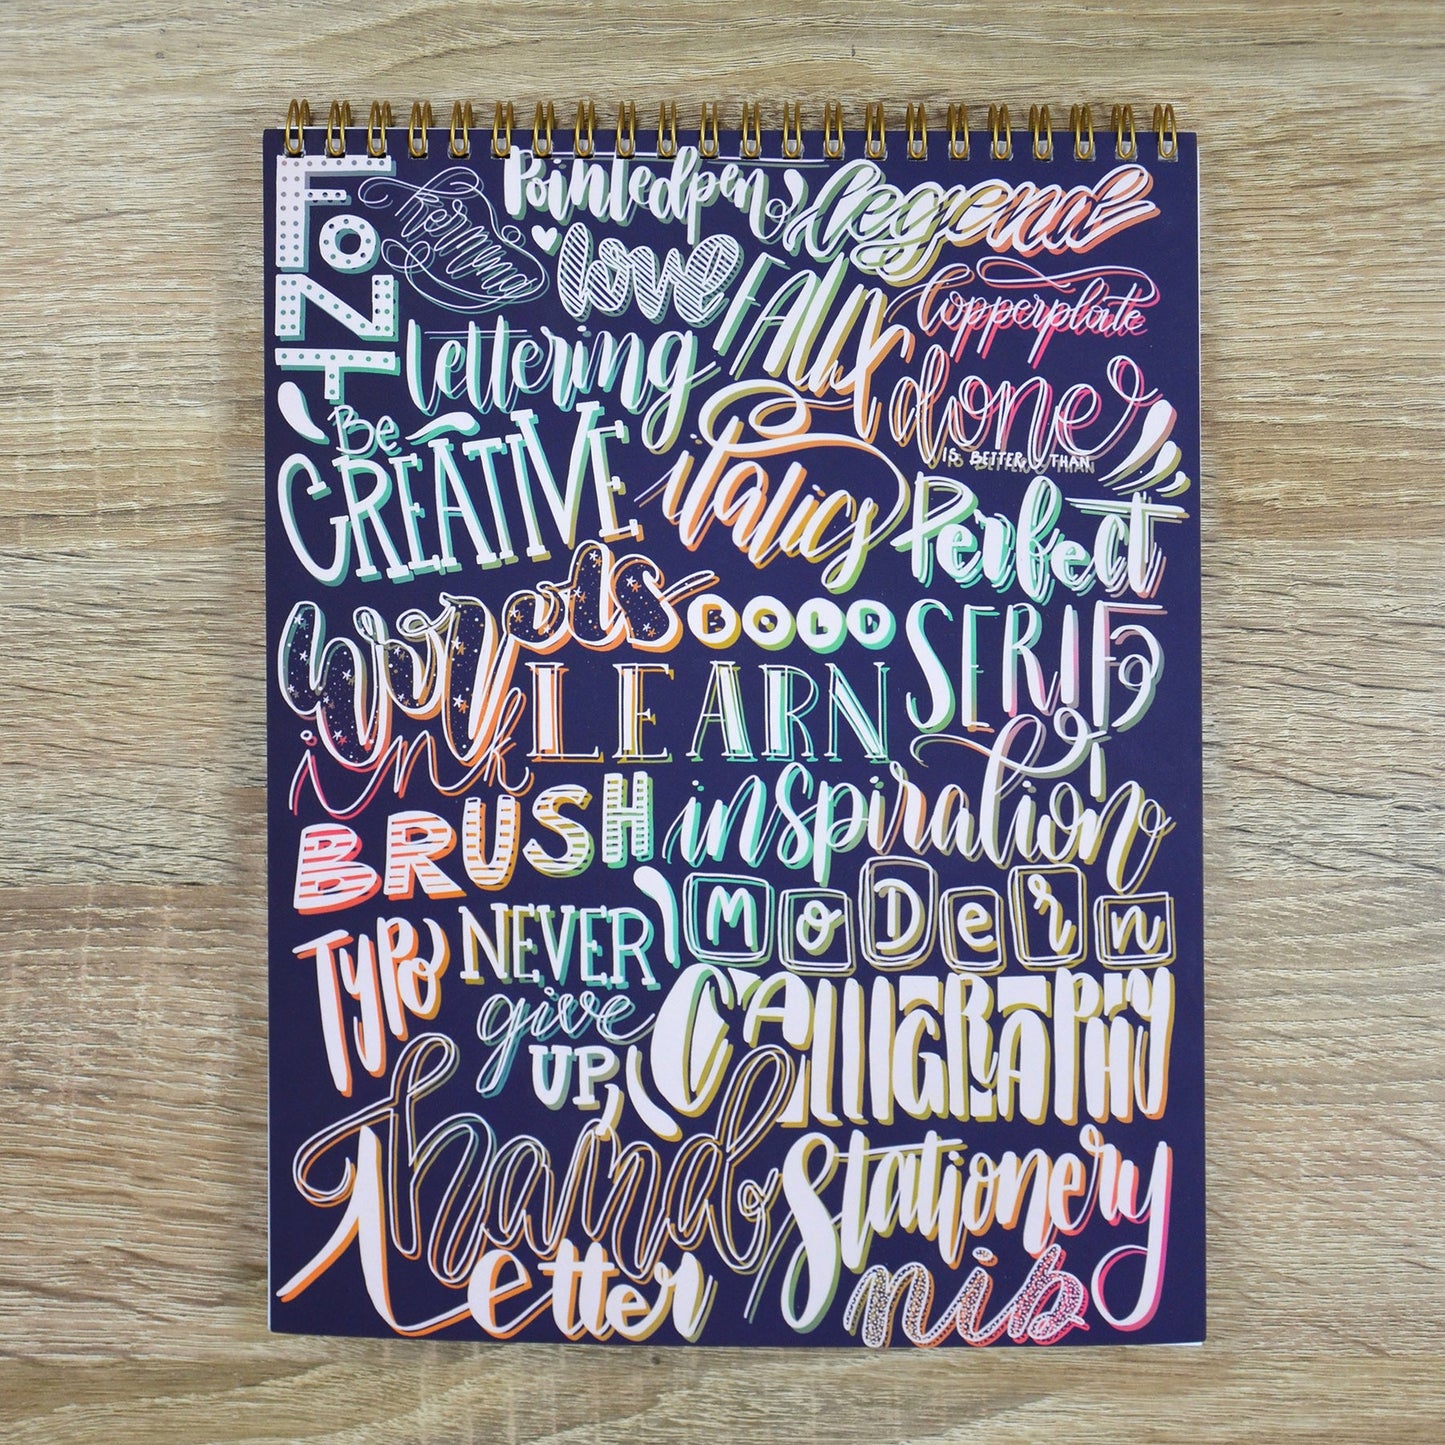 FoNT
thermind
Pointedpen
legend
love
FAUX
Copperplate
lettering
done
IS BETTER THAN
Perfect
Be
CREATIVE
italics
words
BOLD
SERIF
LEARN
ink
BRUSH
inspiration
MoDern
TYPO
NEVER
give
UP,
CALLIGRAPHY
hand
Letter
Stationery
nib